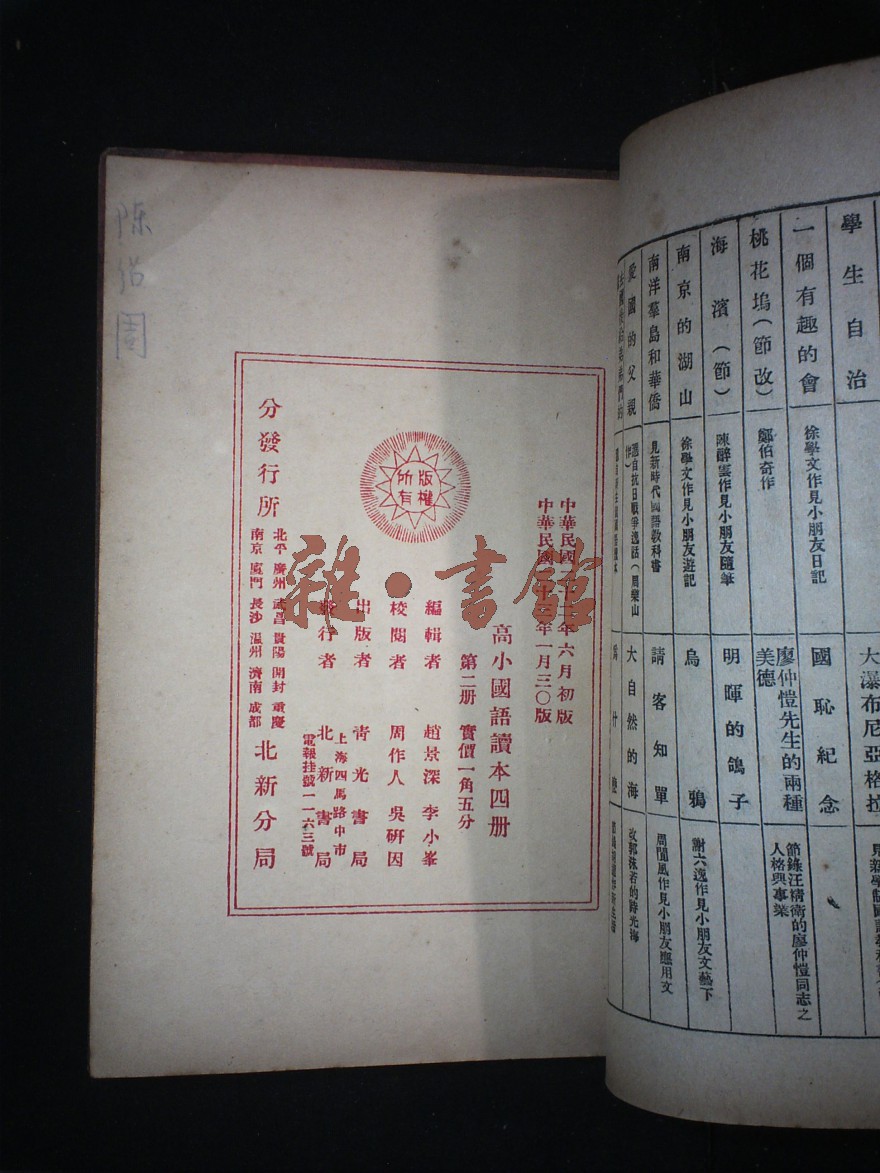 學生自治
一個有趣的會
徐學文作見小朋友日記
桃花塢（節改）
鄭伯奇作
海濱（節）
陳醉雲作見小朋友隨筆
南京的湖山
徐學文作見小朋友遊記
南洋羣島和華僑
見新時代國語教科書
愛國的父親
選自抗日戰爭逸話（周樂山作）
大瀑布尼亞格拉
國恥紀念
廖仲愷先生的兩種美德
節錄汪精衛的廖仲愷同志之人格與事業
明暉的鴿子
烏鴉
謝六逸作見小朋友文藝下
請客知單
周閒風作見小朋友應用文
大自然的海
改郭沫若的時光海
中華民國二十二年六月初版
中華民國二十三年一月三〇版
高小國語讀本四册
第二册 實價一角五分
編輯者 趙景深 李小峯
校閱者 周作人 吳研因
出版者 青光書局
發行者 北新書局
上海四馬路中市
電報挂號一一六三號
版權所有
分發行所
北平 廣州 武昌 貴陽 開封 重慶
南京 廈門 長沙 温州 濟南 成都
北新分局
雜·書館